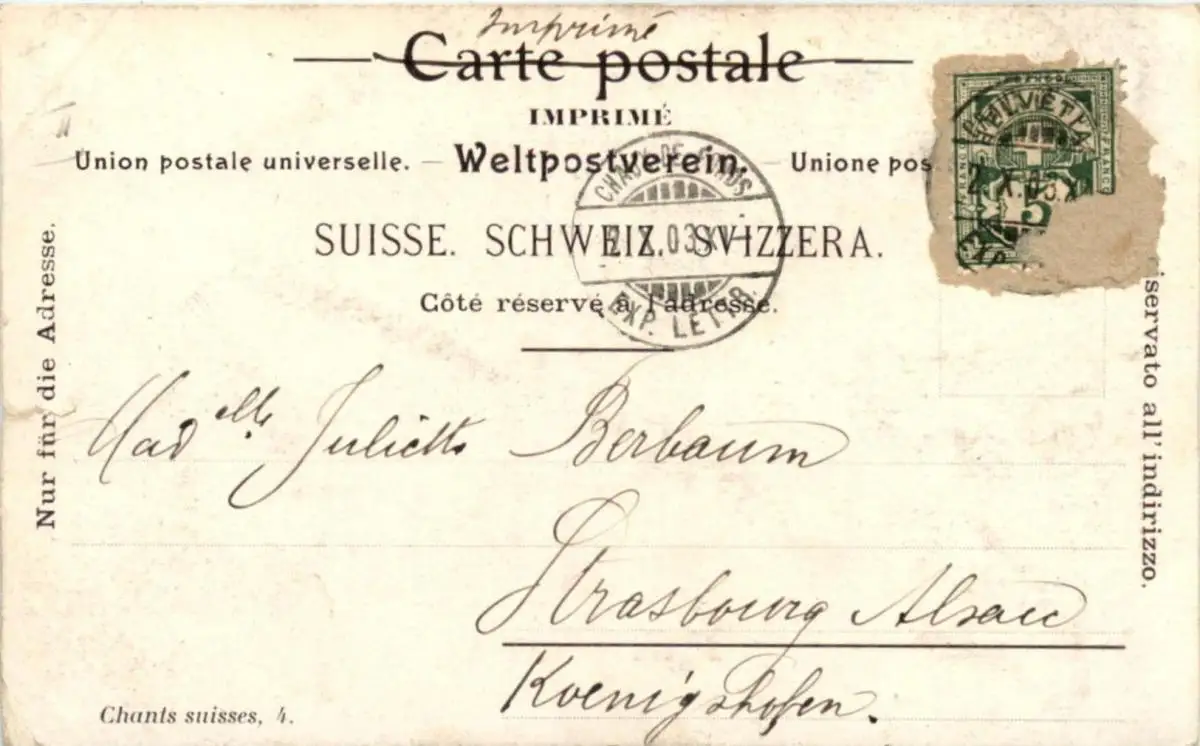 Imprimé
Carte postale
IMPRIMÉ
Union postale universelle. — Weltpostverein. — Unione pos
SUISSE. SCHWEIZ. SVIZZERA.
Côté réservé à l'adresse.
Nur für die Adresse.
iservato all'indirizzo.
CHAUX-DE-FONDS
2. X. 03. XI
EXP. LETTR.
HELVETIA
FRANCO
FRANCO
5
2. X. 03. X
Mad elle Juliette Berbaum
Strasbourg Alsace
Koenigshofen.
Chants suisses, 4.